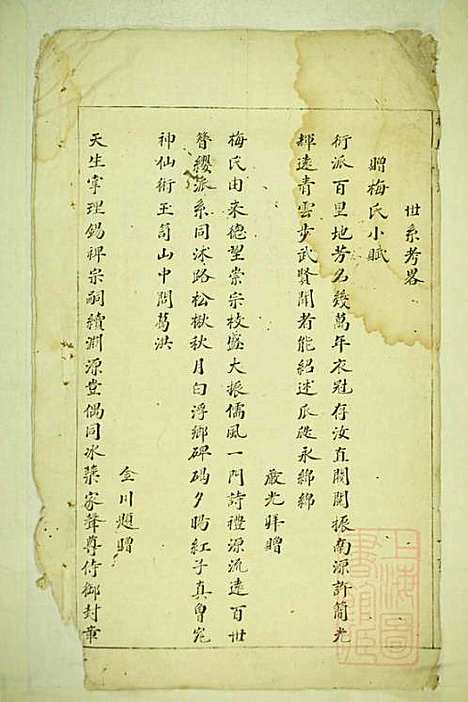 世系考畧
贈梅氏小賦
衍派百里地芳名幾萬年衣冠存汝直閥閱振南源許簡光
輝遠青雲步武賢開者能紹述瓜瓞永綿綿
嚴光拜贈
梅氏由来德望崇宗枝盛大振儒風一門詩禮源流遠百世
簪纓派系同沭路松楸秋月白浮鄉碑碣夕陽紅子真曾究
神仙術玉笥山中問葛洪
金川題贈
天生宰理錫裨宗嗣續淵源豈偶同冰蘖家聲尊侍御封章
上海圖
書館藏